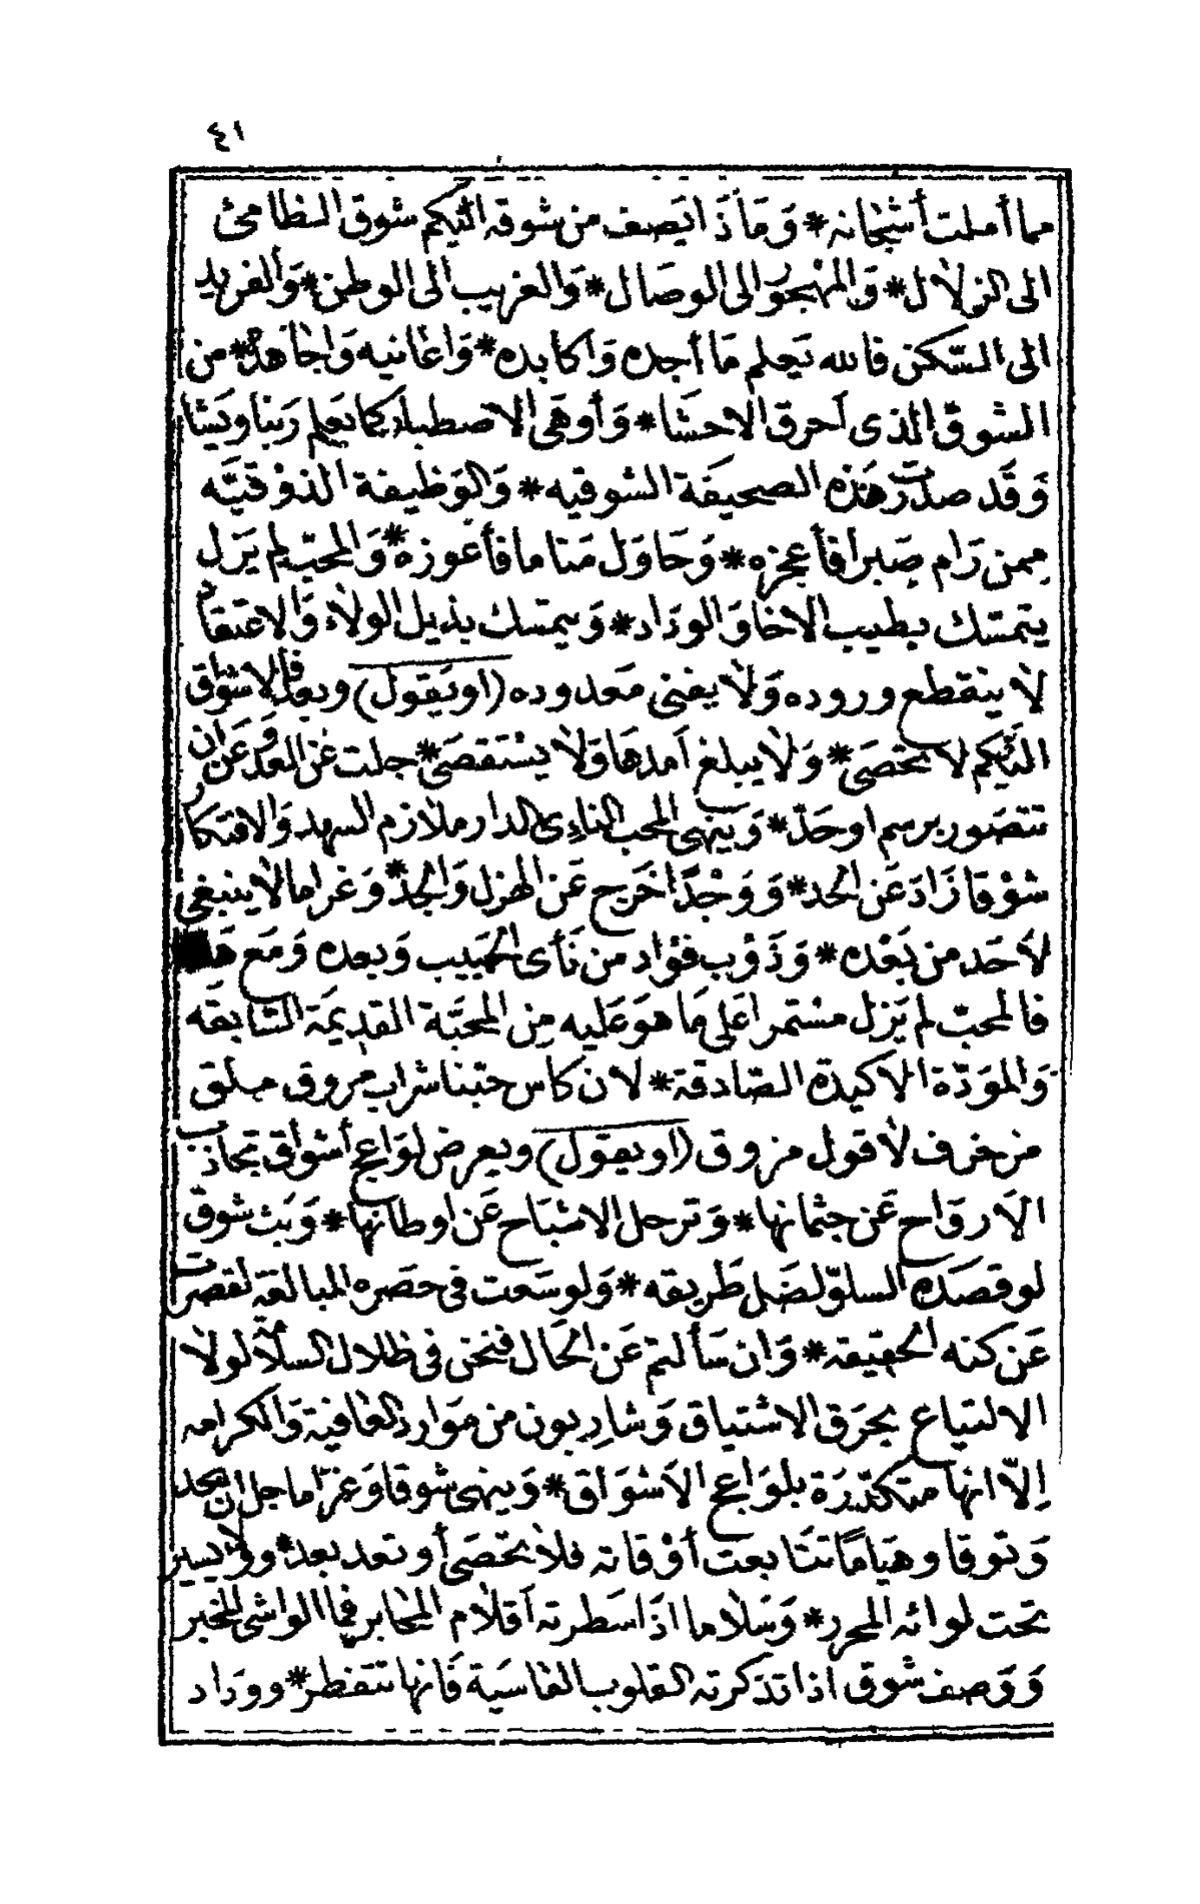 ٤١
مما أملت أشجانه * وَمَاذَا يَصف من شوقه اليكم شوق الظامئ
الى الزلال * وَالمهْجور الى الوصَال * وَالغريب الى الوطن * وَالفريد
الى السّكن فالله يَعلم مَا أجده وَاكابده * وَاعانيه وَاجاهدُه * من
الشوق الذى اَحرق الاحشَا * وَأوهَى الاصطبار كما يَعلم رَبنا ويَشا
وَقَد صدرَت هَذه الصحيفَة الشوقيه * وَالوَظيفة الذوْقيَّه
مِمن رَام صَبرا فأعجزه * وَحَاوَل مَناما فأعوزه * وَالمحبّ لم يَزل
يتمسّك بطيب الاخا وَالودَاد * وَيتمسّك بذيل الولاء وَالاعتقاد
لا ينقطع وروده وَلا يفنى مَعدوده (او يَقول) وبعد فالاشواق
اليَكم لا تحصَى * وَلا يبلغ اَمدهَا وَلا يسْتقصَى * جلت عَن العَد وَعَن ان
تتصَور برسم او حَدّ * وَينهى المحب النائى الدار ملازم السهد وَالافتكار
شوْقا زَادَ عَن الحد * وَوَجْدًا خَرج عَن الهزل وَالجدّ * وَغراما لا ينبغى
لاحَد من بَعْده * وَذَوْب فؤاد من نَأى الحَبيب وَبعده وَمَع هَذا
فالمحبّ لم يَزل مسْتمرا عَلى مَا هوَ عَليه مِن المحبَّة القديمَة السَّابقَه
وَالموَدّة الاكيدة الصَّادقة * لان كاس حبّنا شراب مروق حلق
من خرف لا قول مزوق (او يقول) ويعرض لوَاعج أشواق تجاذب
الاَروَاح عَن جثمانها * وَترحل الاشبَاح عَن اوطانها * وَبَث شوق
لو قصَدَه السلوّ لضَل طَريقه * وَلو سَعت فى حصَره المبالغة لقصرت
عَن كنه الحقيقة * وَان سَألتم عَن الحَال فنحن فى ظلال السلامة لولا
الالتياع بحَرَق الاشتياق وَشاربون من مَوارد العَافية وَالكرامه
اِلاّ انها متكدّرَة بلوَاعج الاَشوَاق * وَينهى شوقا وَغرَاما جل ان يحد
وَتوقا وهيَامًا تتَابعت أوْقاته فلا تحصَى أو تعد بعد * وولاء يسير
تحت لوائه المحرر * وَسَلاما اذَا سَطرته اَقلام المحَابر فما الواشى المخبر
وَوَصف شوق اذا تذكرته القلوب القاسيَة فَانها تتفطر * ووَداد